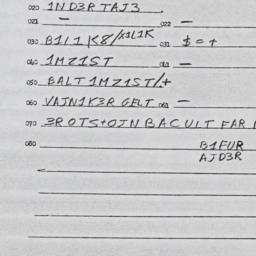 020 1ND3R TAJ3
021 — 022 —
030 B1L1K8/K1L1K 031 $=+
040 1MZ1ST 041 —
050 BALT1MZ1ST/+
060 VAJN1K3R GELT 061 —
070 3ROTS+OJN BACULT FAR
080 B1FUR
AJD3R